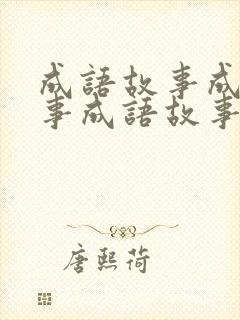 成語故事成
事成語故事
唐熙荷